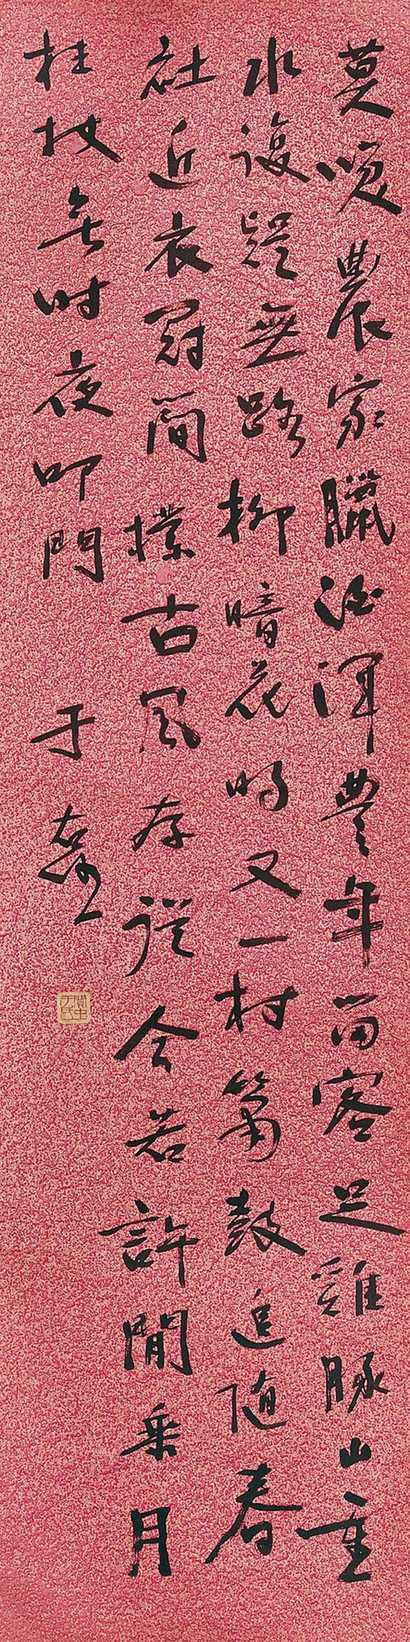 莫笑農家臘酒渾豐年留客足雞豚山重
水複疑無路柳暗花明又一村簫鼓追隨春
社近衣冠簡樸古風存從今若許閒乘月
拄杖無時夜叩門
于